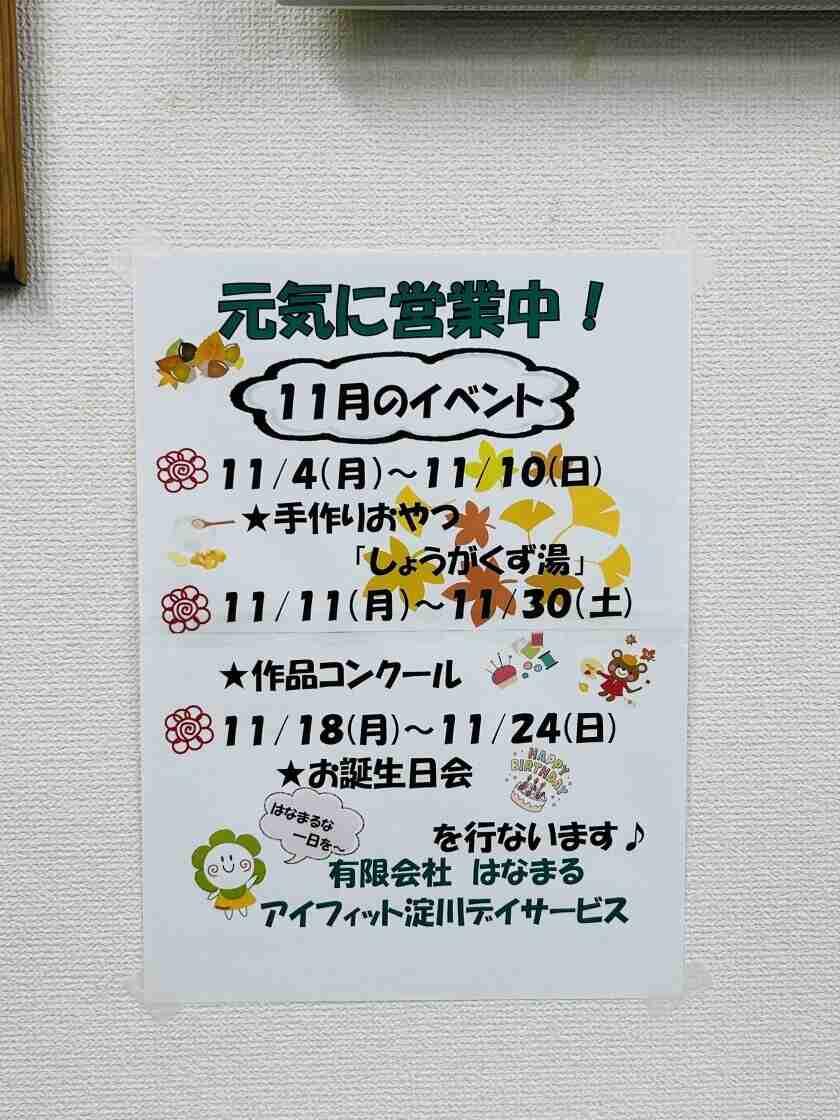 元気に営業中!
11月のイベント
11/4(月)~11/10(日)
★手作りおやつ
「しょうがくず湯」
11/11(月)~11/30(土)
★作品コンクール
11/18(月)~11/24(日)
★お誕生日会
HAPPY
BIRTHDAY
はなまるな
一日を~
を行ないます♪
有限会社 はなまる
アイフィット淀川デイサービス